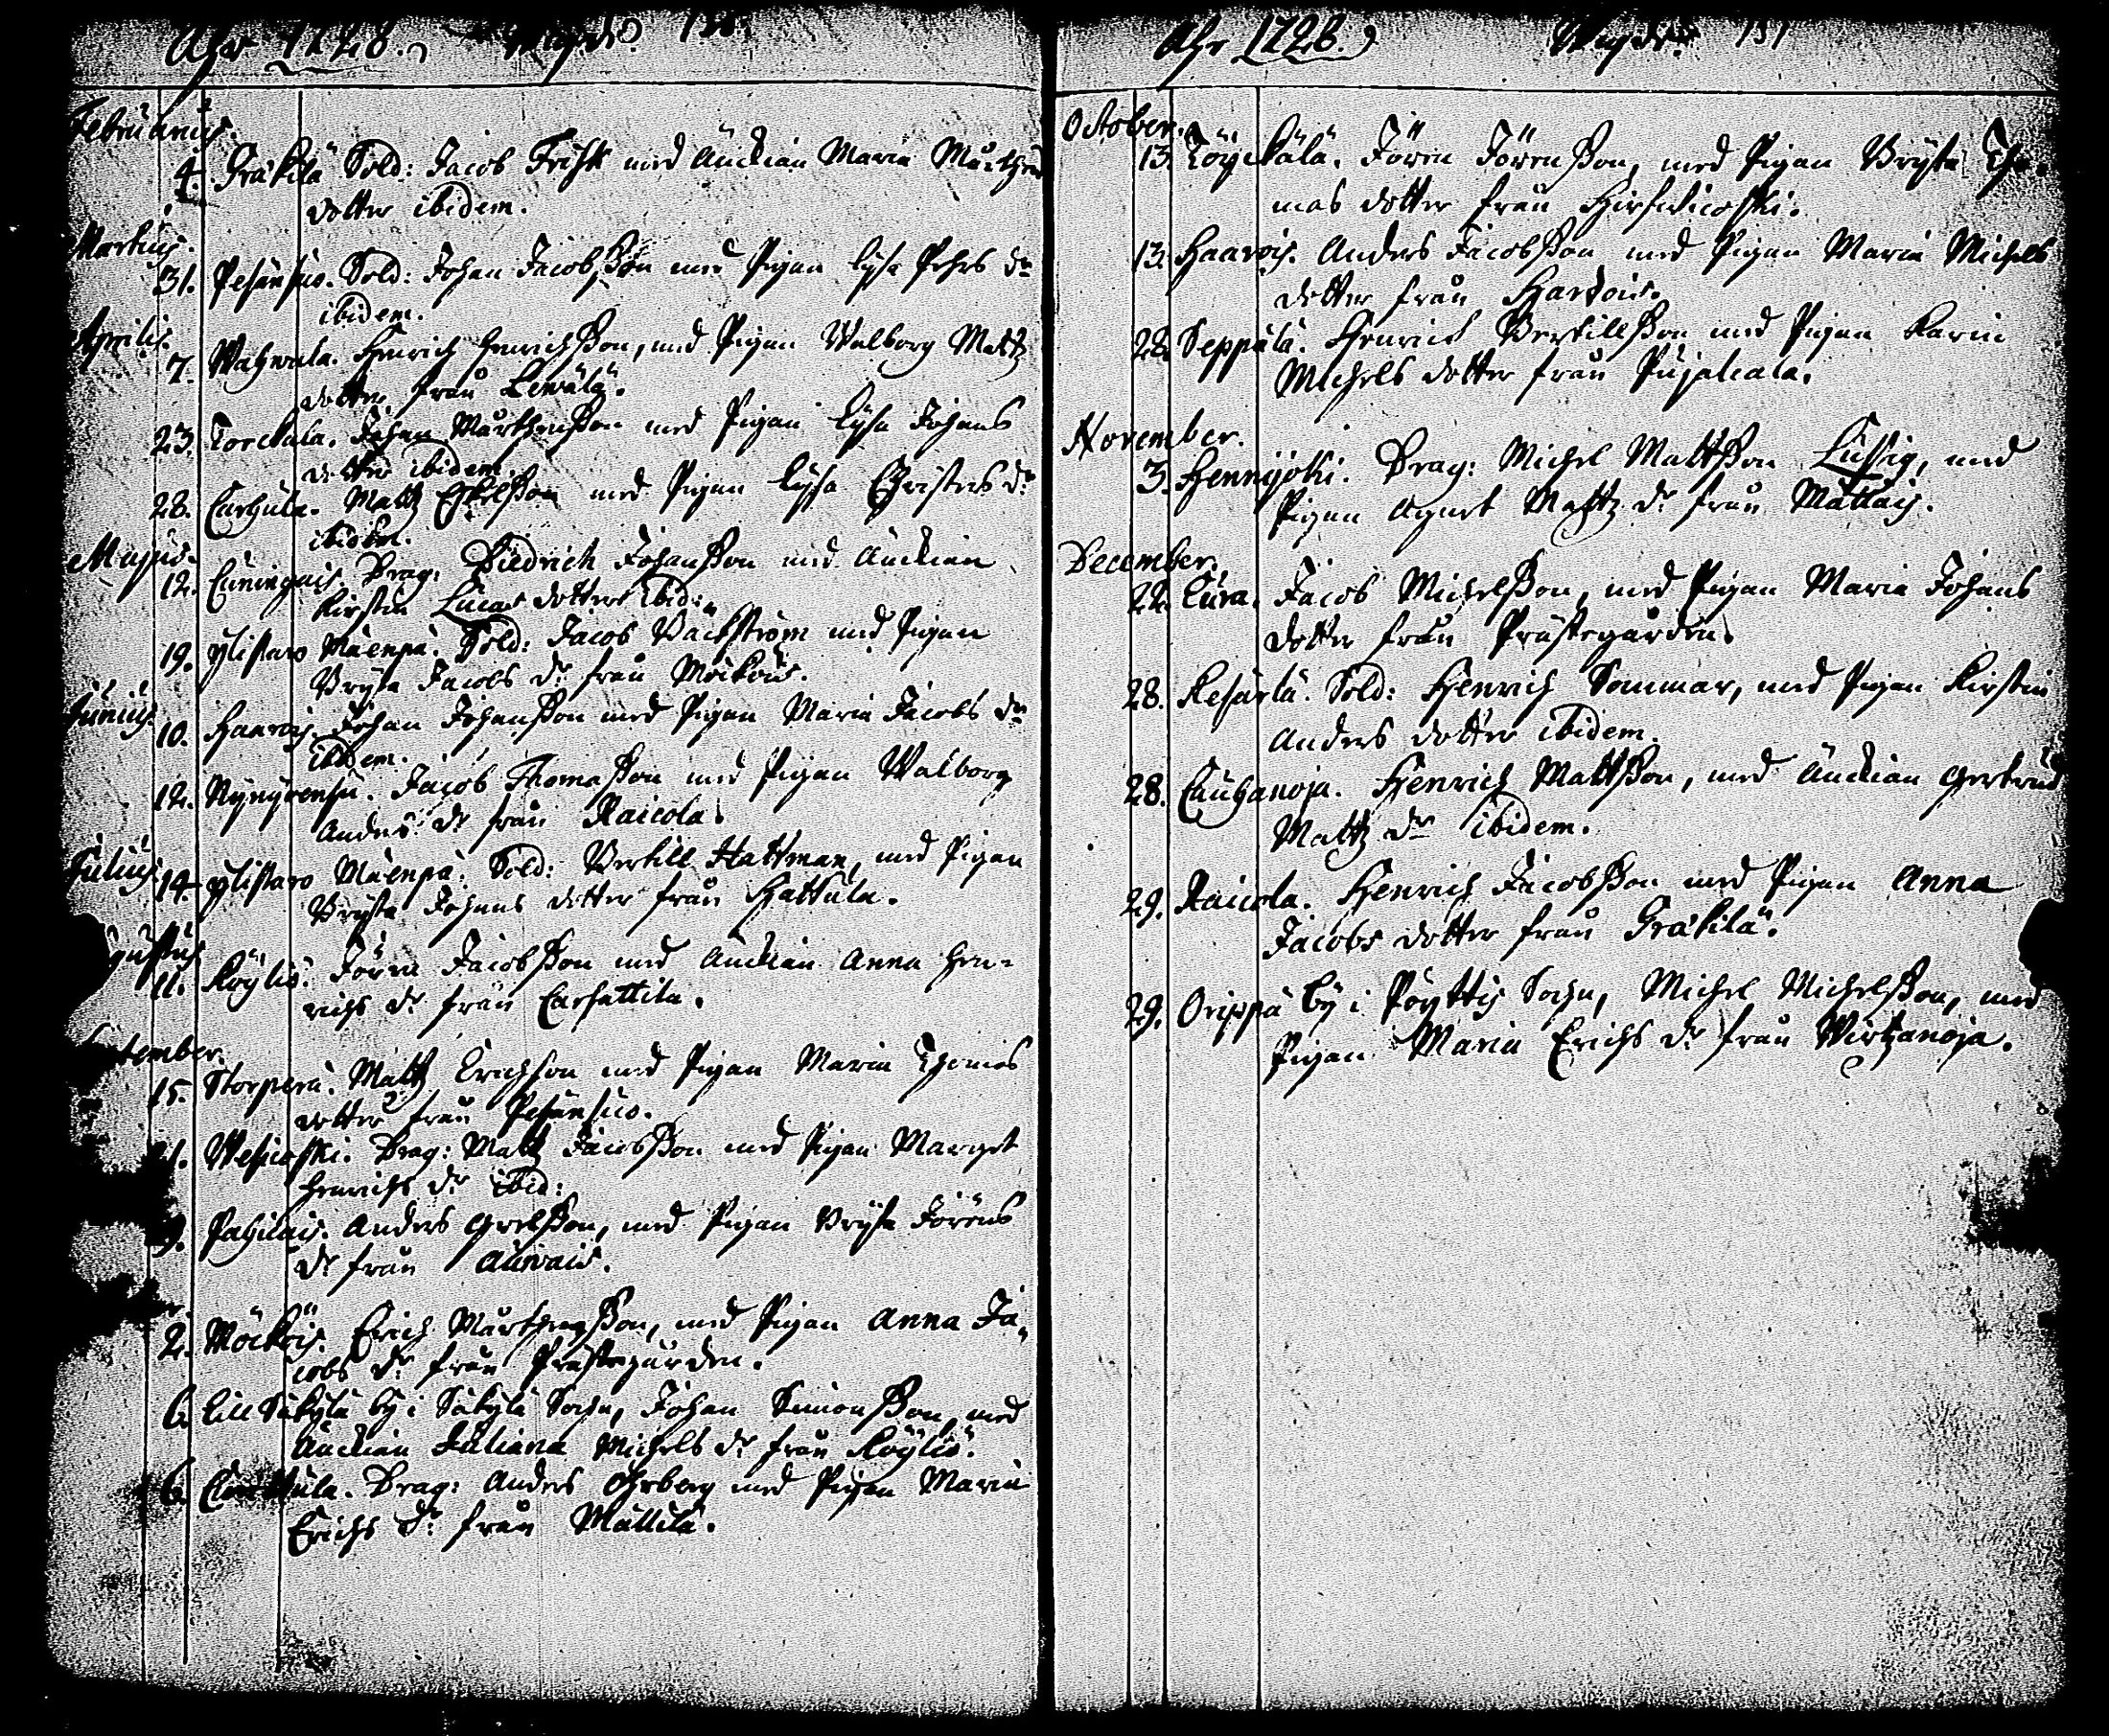 Åhr 1728. Wigde. 130.
Februarius.
4. Fräkilä Sold: Jacob Frisk med Änckian Maria Mårthens
dotter ibidem.
Martius.
31. Pesänsuo. Sold: Johan Jacobsson med Pigan Lijsa Pehrs dr
ibidem.
Aprilis.
7. Wahwala. Henrich Henrichsson, med Pigan Walborg Mattz
dotter från Lewälä.
23. Torckala. Johan Mårthensson med Pigan Lijsa Johans
dotter ibidem.
28. Carhula. Mattz Eskelsson med Pigan Lijsa Christers dr
ibidem.
Majus.
12. Cuningais. Drag: Diedrich Johansson med Änckian
Kirstin Lucas dotter ibid:
19. Ylistaro Mäenpä. Sold: Jacob Bäckström med Pigan
Brijta Jacobs dr från Möicköis.
Junius.
10. Haarois. Johan Johansson med Pigan Maria Jacobs dr
ibidem.
12. Nynyrensu. Jacob Thomasson med Pigan Walborg
Anders dr från Raicola.
Julius.
14. Ylistaro Mäenpä. Sold: Bertill Hattman, med Pigan
Brijta Johans dotter från Hattula.
gustus
11. Köyliö. Jören Jacobsson med Änckian Anna Hen-
richs dr från Carhattila.
tember.
15. Storperä. Mattz Erichson med Pigan Maria Thomas
dotter från Pesänsuo.
21. Wesicoski. Drag: Mattz Jacobsson med Pigan Marget
Henrichs dr ibid:
9. Pahilais. Anders Grelsson, med Pigan Brijta Jörens
dr från Auwais.
2. Möicköis. Erich Mårthensson, med Pigan Anna Ja-
cobs dr från Prästegården.
6. Lill Säkylä by i Säkylä Sochn, Johan Simonsson, med
Änckian Juliana Michels dr från Köyliö.
6. Drag: Anders Ohrberg med Pigan Maria
Erichs dr från Mällilä.
Åhr 1728. Wigde. 131
October.
13. Töyckälä. Jören Jörensson, med Pigan Brijta Tho-
mas dotter från Hirfwicoski.
13. Haarois. Anders Jacobsson med Pigan Maria Michels
dotter från Harwois.
28. Seppälä. Henrich Bertillsson med Pigan Karin
Michels dotter från Pujalcala.
November.
3. Hennijoki. Drag: Michel Mattsson Lustig, med
Pigan Agnet Mattz dr från Mattais.
December.
22. Cura. Jacob Michelsson, med Pigan Maria Johans
dotter från Prästegården.
28. Resärlä. Sold: Henrich Sommar, med Pigan Kirstin
Anders dotter ibidem.
28. Cauhanoja. Henrich Mattsson, med Änckian Gertrud
Mattz dr ibidem.
29. Raicola. Henrich Jacobsson med Pigan Anna
Jacobs dotter från Fräkilä.
29. Orippä by i Pöyttis Sochn, Michel Michelsson, med
Pigan Maria Erichs dr från Wirtzanoja.